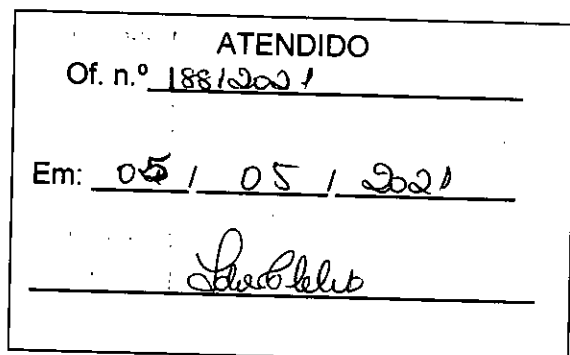 ATENDIDO
Of. n.º 188/2021
Em: 05 / 05 / 2021